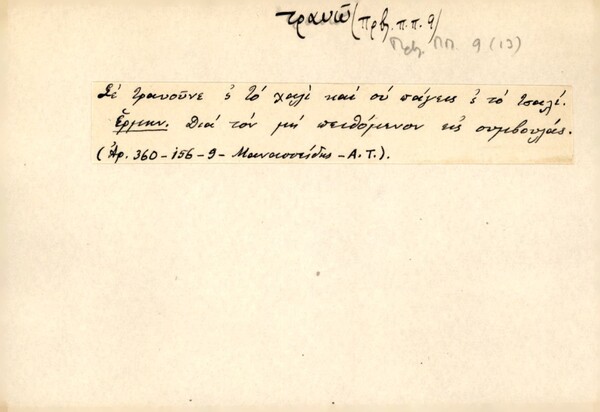 τρανῶ (πρβ. π.π. 9)
Πρβ. ΠΠ. 9 (13)
Σὲ τρανοῦνε ς τὸ χαλὶ καὶ σὺ πάγεις ς τὸ τσαλί.
Ἑρμην. Διὰ τὸν μὴ πειθόμενον εἰς συμβουλάς.
(Ἀρ. 360-156-9-Μανασσείδης-Α.Τ.).